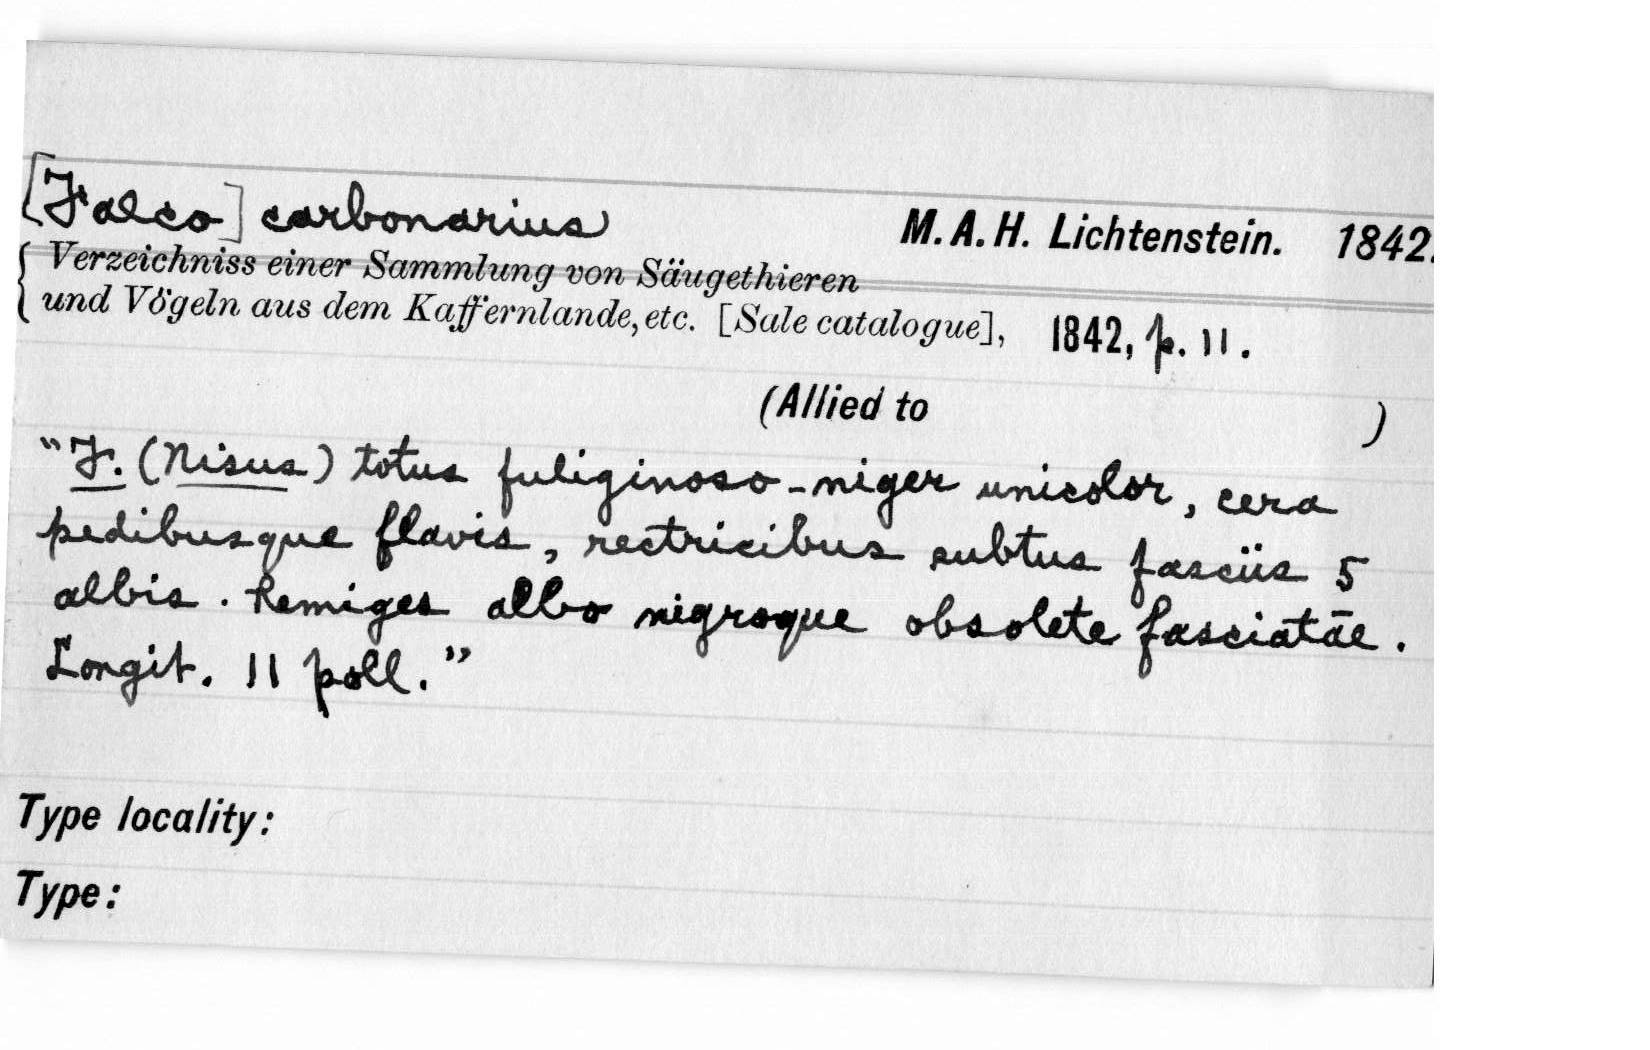 [Falco] carbonarius M.A.H. Lichtenstein. 1842.
Verzeichniss einer Sammlung von Säugethieren
und Vögeln aus dem Kaffernlande, etc. [Sale catalogue], 1842, p. 11.
(Allied to )
"F. (Nisus) totus fuliginoso-niger unicolor, cera
pedibusque flavis, rectricibus subtus fasciis 5
albis. Remiges albo nigroque obsolete fasciatāe.
Longit. 11 poll."
Type locality:
Type: